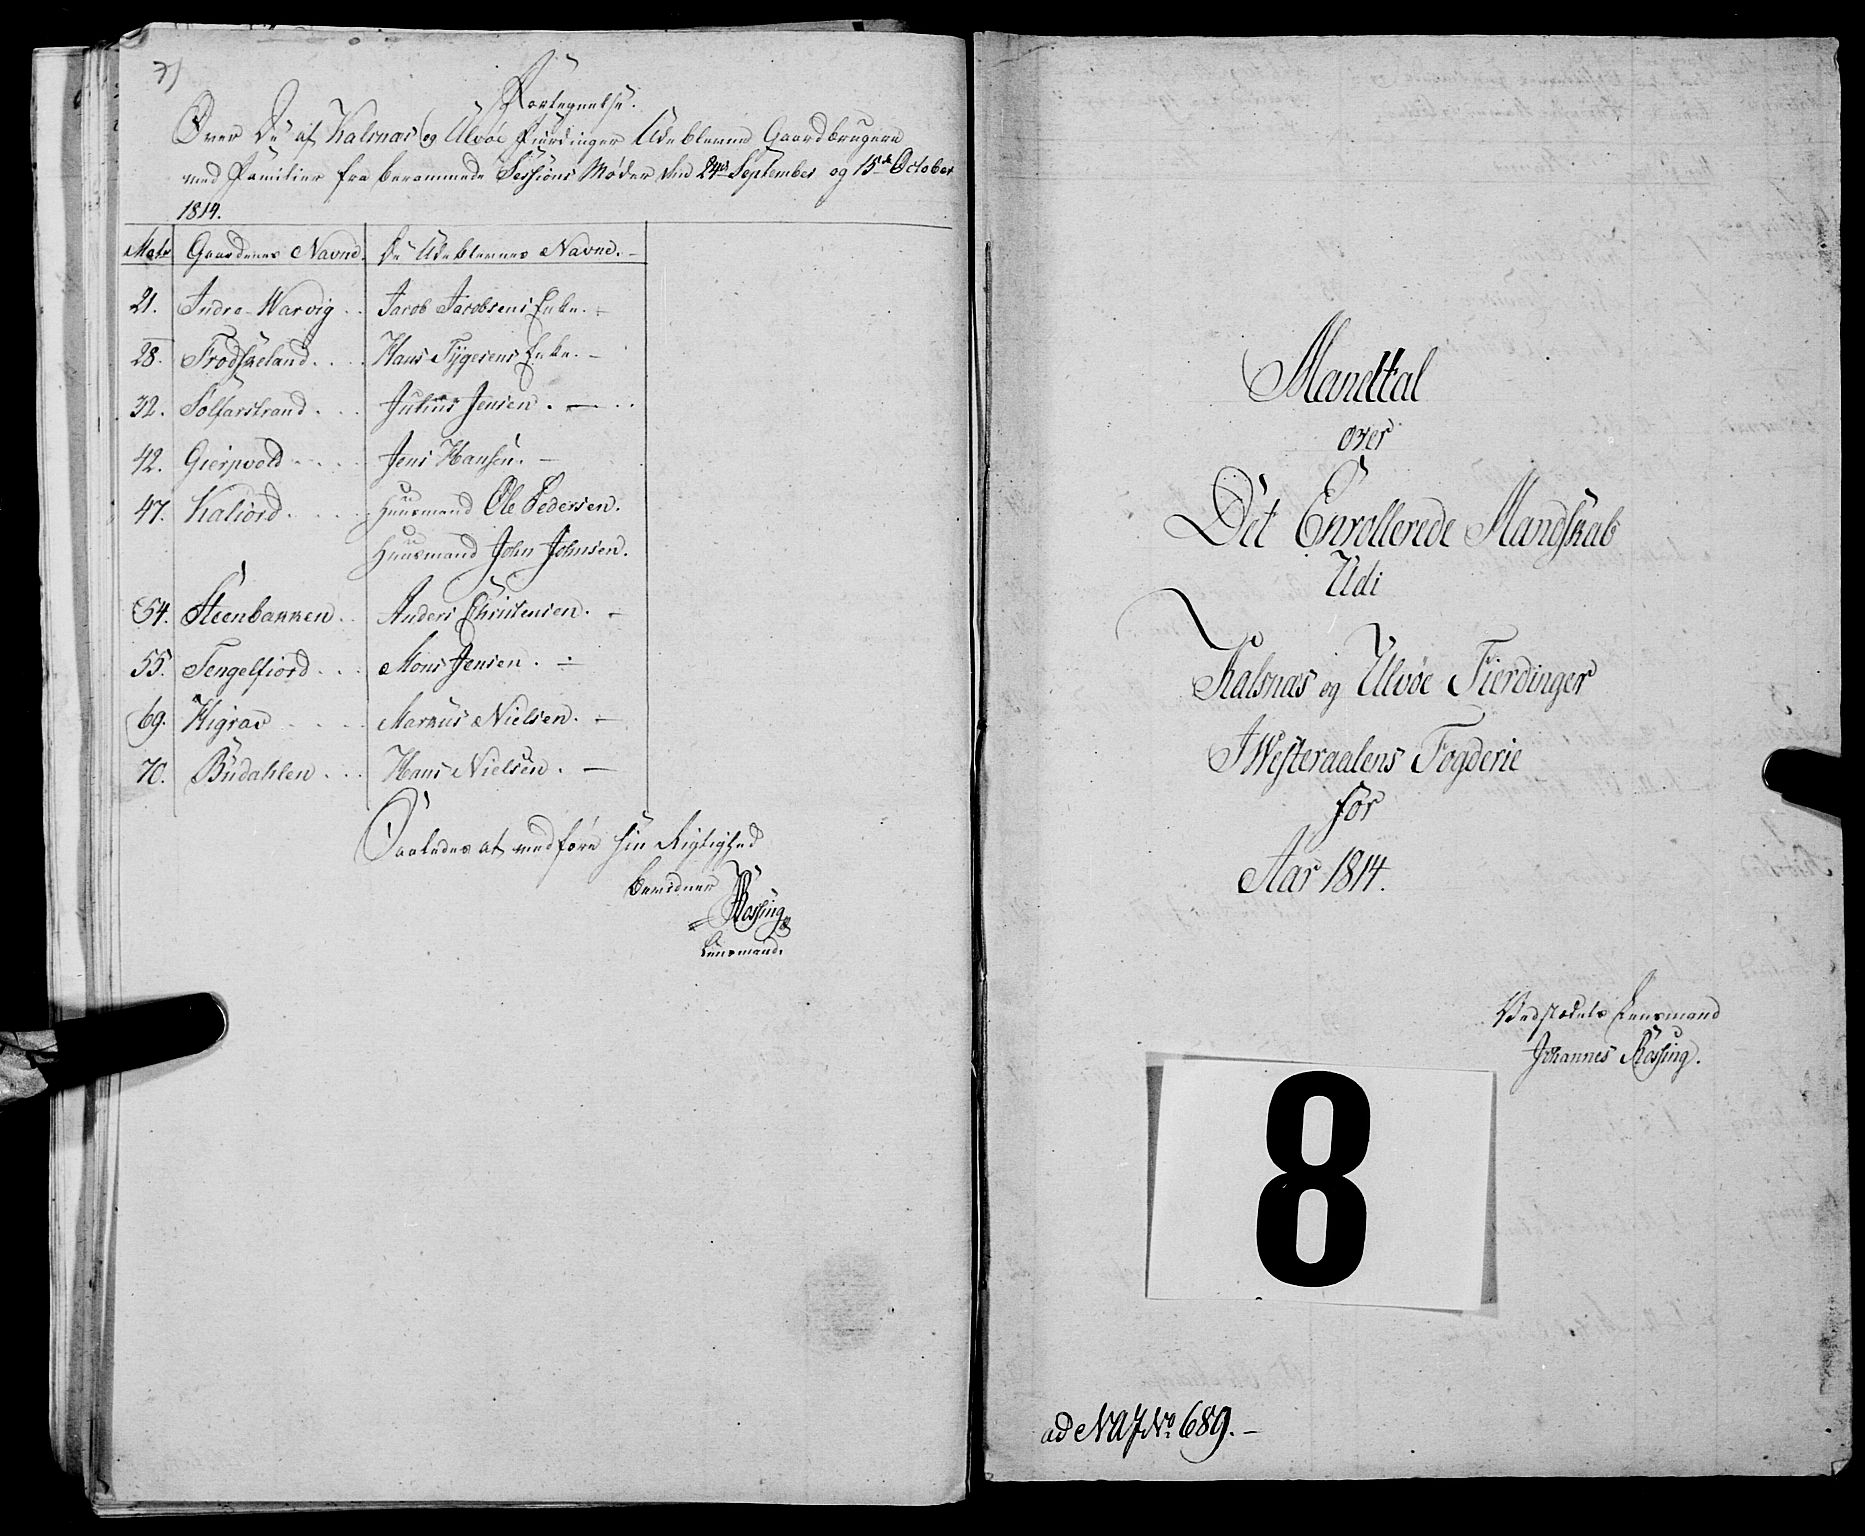 7)
Fortegnelse.
Over De af Kalsnæs og Ulvøe Fierdinger Udeblevne Gaardbrugere
med Familier fra berammede Sessions Møder den 24de September og 15de October
1814.
Matr Gaardenes Navne. De Udeblevnes Navne. -
21. Indre-Warvig . . Jacob Jacobsens Enke. -
28. Trodskeland . . . . Hans Tygesens Enke. -
32. Solfarstrand . . . Julius Jensen . — . .
42. Gierpvold . . . . Jens Hansen. -
47. Kaliord . . . . Huusmand Ole Pedersen.
Huusmand John Johnsen.
54. Steenbakken . . Anders Christensen . -
55. Tengelfiord . . . Mons Jensen . -
69. Higrav . . . . Markus Nielsen. -
70. Budahlen . . . Hans Nielsen . —
Saaledes at medføre sin Rigtighed
bevidner
Røssing
Lensmand.
Mandtal
over
Det Enrollerede Mandskab
Udi
Kalsnæs og Ulvøe Fierdinger
I Westeraalens Fogderie
for
Aar 1814.
Vedstædets Lensmand
Johannes Røssing.
8
ad NAJ No 689. -